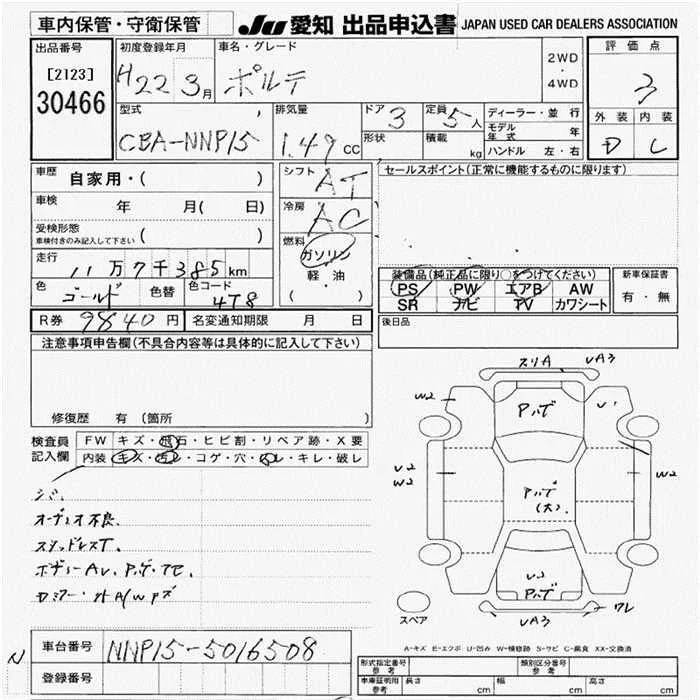 車内保管・守衛保管
JU 愛知 出品申込書 JAPAN USED CAR DEALERS ASSOCIATION
出品番号
[2123]
30466
初度登録年月
H22 3月
車名・グレード
ポルテ
2WD
・
4WD
評価点
3
外装 内装
D C
型式
CBA-NNP15
排気量
1.49 CC
ドア 3
形状
定員 5人
積載 kg
ディーラー・並行
モデル年式 年
ハンドル 左・右
車歴 自家用・( )
車検 年 月( 日)
受検形態
車検付きのみ記入して下さい ( )
走行 11万7千385km
色 ゴールド 色替 色コード 4T8
R券 9840円 名変通知期限 月 日
シフト AT
冷房 AC
燃料
ガソリン
軽・油
( )
セールスポイント(正常に機能するものに限ります)
装備品(純正品に限り○をつけてください)
PS PW エアB AW
SR ナビ TV カワシート
新車保証書
有・無
後日品
注意事項申告欄(不具合内容等は具体的に記入して下さい)
修復歴 有 (箇所
検査員記入欄
FW キズ・飛石・ヒビ割・リペア跡・X要
内装 キズ・汚レ・コゲ・穴・スレ・キレ・破レ
オーディオ不良.
スタッドレスT.
スリA UA3
W2
Pハゲ
U1
U2
W2
Pハゲ
(大).
W2
U2
Pハゲ
UA3
ワレ
スペア
A-キズ E-エクボ U-凹み W-補修跡 S-サビ C-腐食 XX-交換済
N
車台番号 NNP15-5016508
登録番号
形式指定番号 参考
類別区分番号 参考
車庫証明用 参考 長さ cm 幅 cm 高さ cm